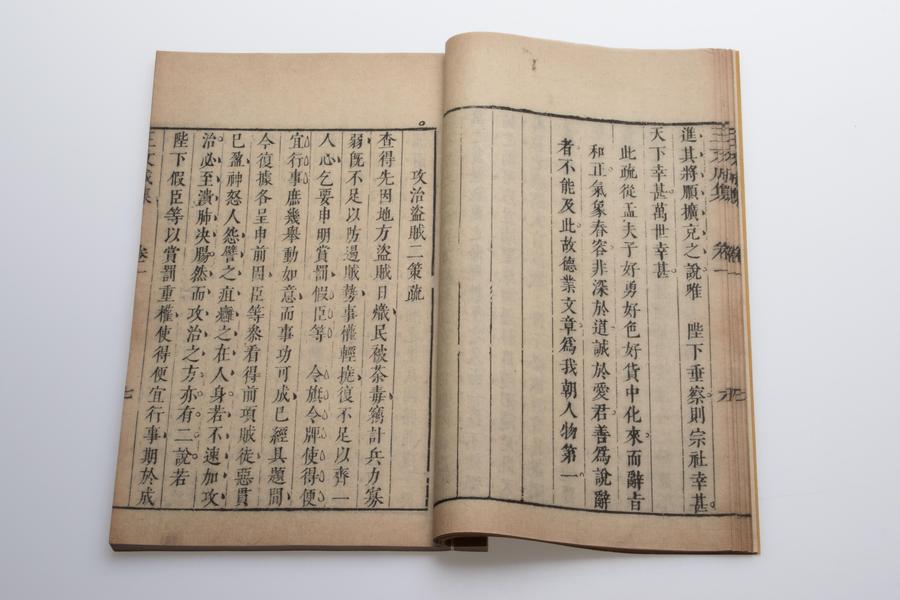 進其將順擴充之說唯　陛下垂察則宗社幸甚
天下幸甚萬世幸甚
此疏從孟夫子好勇好色好貨中化來而辭旨
和正氣象春容非深於道誠於愛君善爲說辭
者不能及此故德業文章爲我朝人物第一
攻治盜賊二策疏
查得先因地方盜賊日熾民被荼毒竊計兵力寡
弱旣不足以防遏賊勢事權輕撓復不足以齊一
人心乞要申明賞罰假臣等　令旗令牌使得便
宜行事庶幾舉動如意而事功可成已經具題間
今復據各呈申前因臣等叅看得前項賊徒惡貫
已盈神怒人怨譬之疽癰之在人身若不速加攻
治必至潰肺决腸然而攻治之方亦有二說若
陛下假臣等以賞罰重權使得便宜行事期於成
王文成集　卷一　七